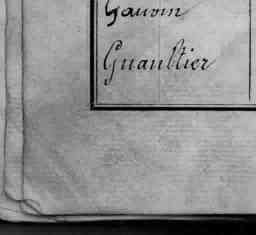 Gauvin
Guaultier